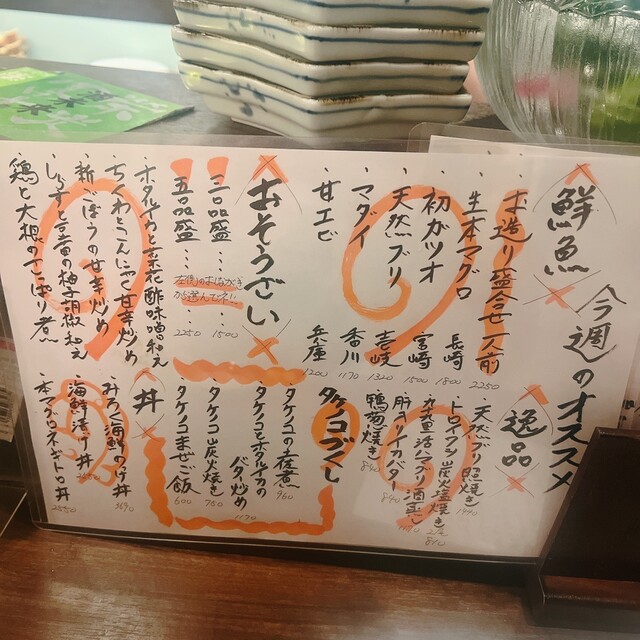 今週のオススメ
鮮魚
・お造り盛合せ一人前 2250
・生本マグロ 長崎 1800
・初カツオ 宮崎 1500
・天然ブリ 壱岐 1320
・マダイ 香川 1170
・甘エビ 兵庫 1200
逸品
・天然ブリ照焼き
・トロイワシ炭火塩焼き
・九十九里活ハマグリ酒蒸し
・肝付カワハギ
・鴨葱焼き 840
おそうざい
三品盛 … 1500
五品盛 … 2250
・ホタルイカと菜花酢味噌和え
・ちくわとこんにゃく甘辛炒め
・新ごぼうの甘辛炒め
・しらすと豆苗の柚子胡椒和え
・鶏と大根のさっぱり煮
タケノコづくし
・タケノコの土佐煮 960
・タケノコとホタルイカのバター炒め 1170
・タケノコ炭火焼き 760
・タケノコまぜご飯 600
丼
・みろく海鮮のっけ丼 3690
・海鮮漬け丼
・本マグロネギトロ丼 2550